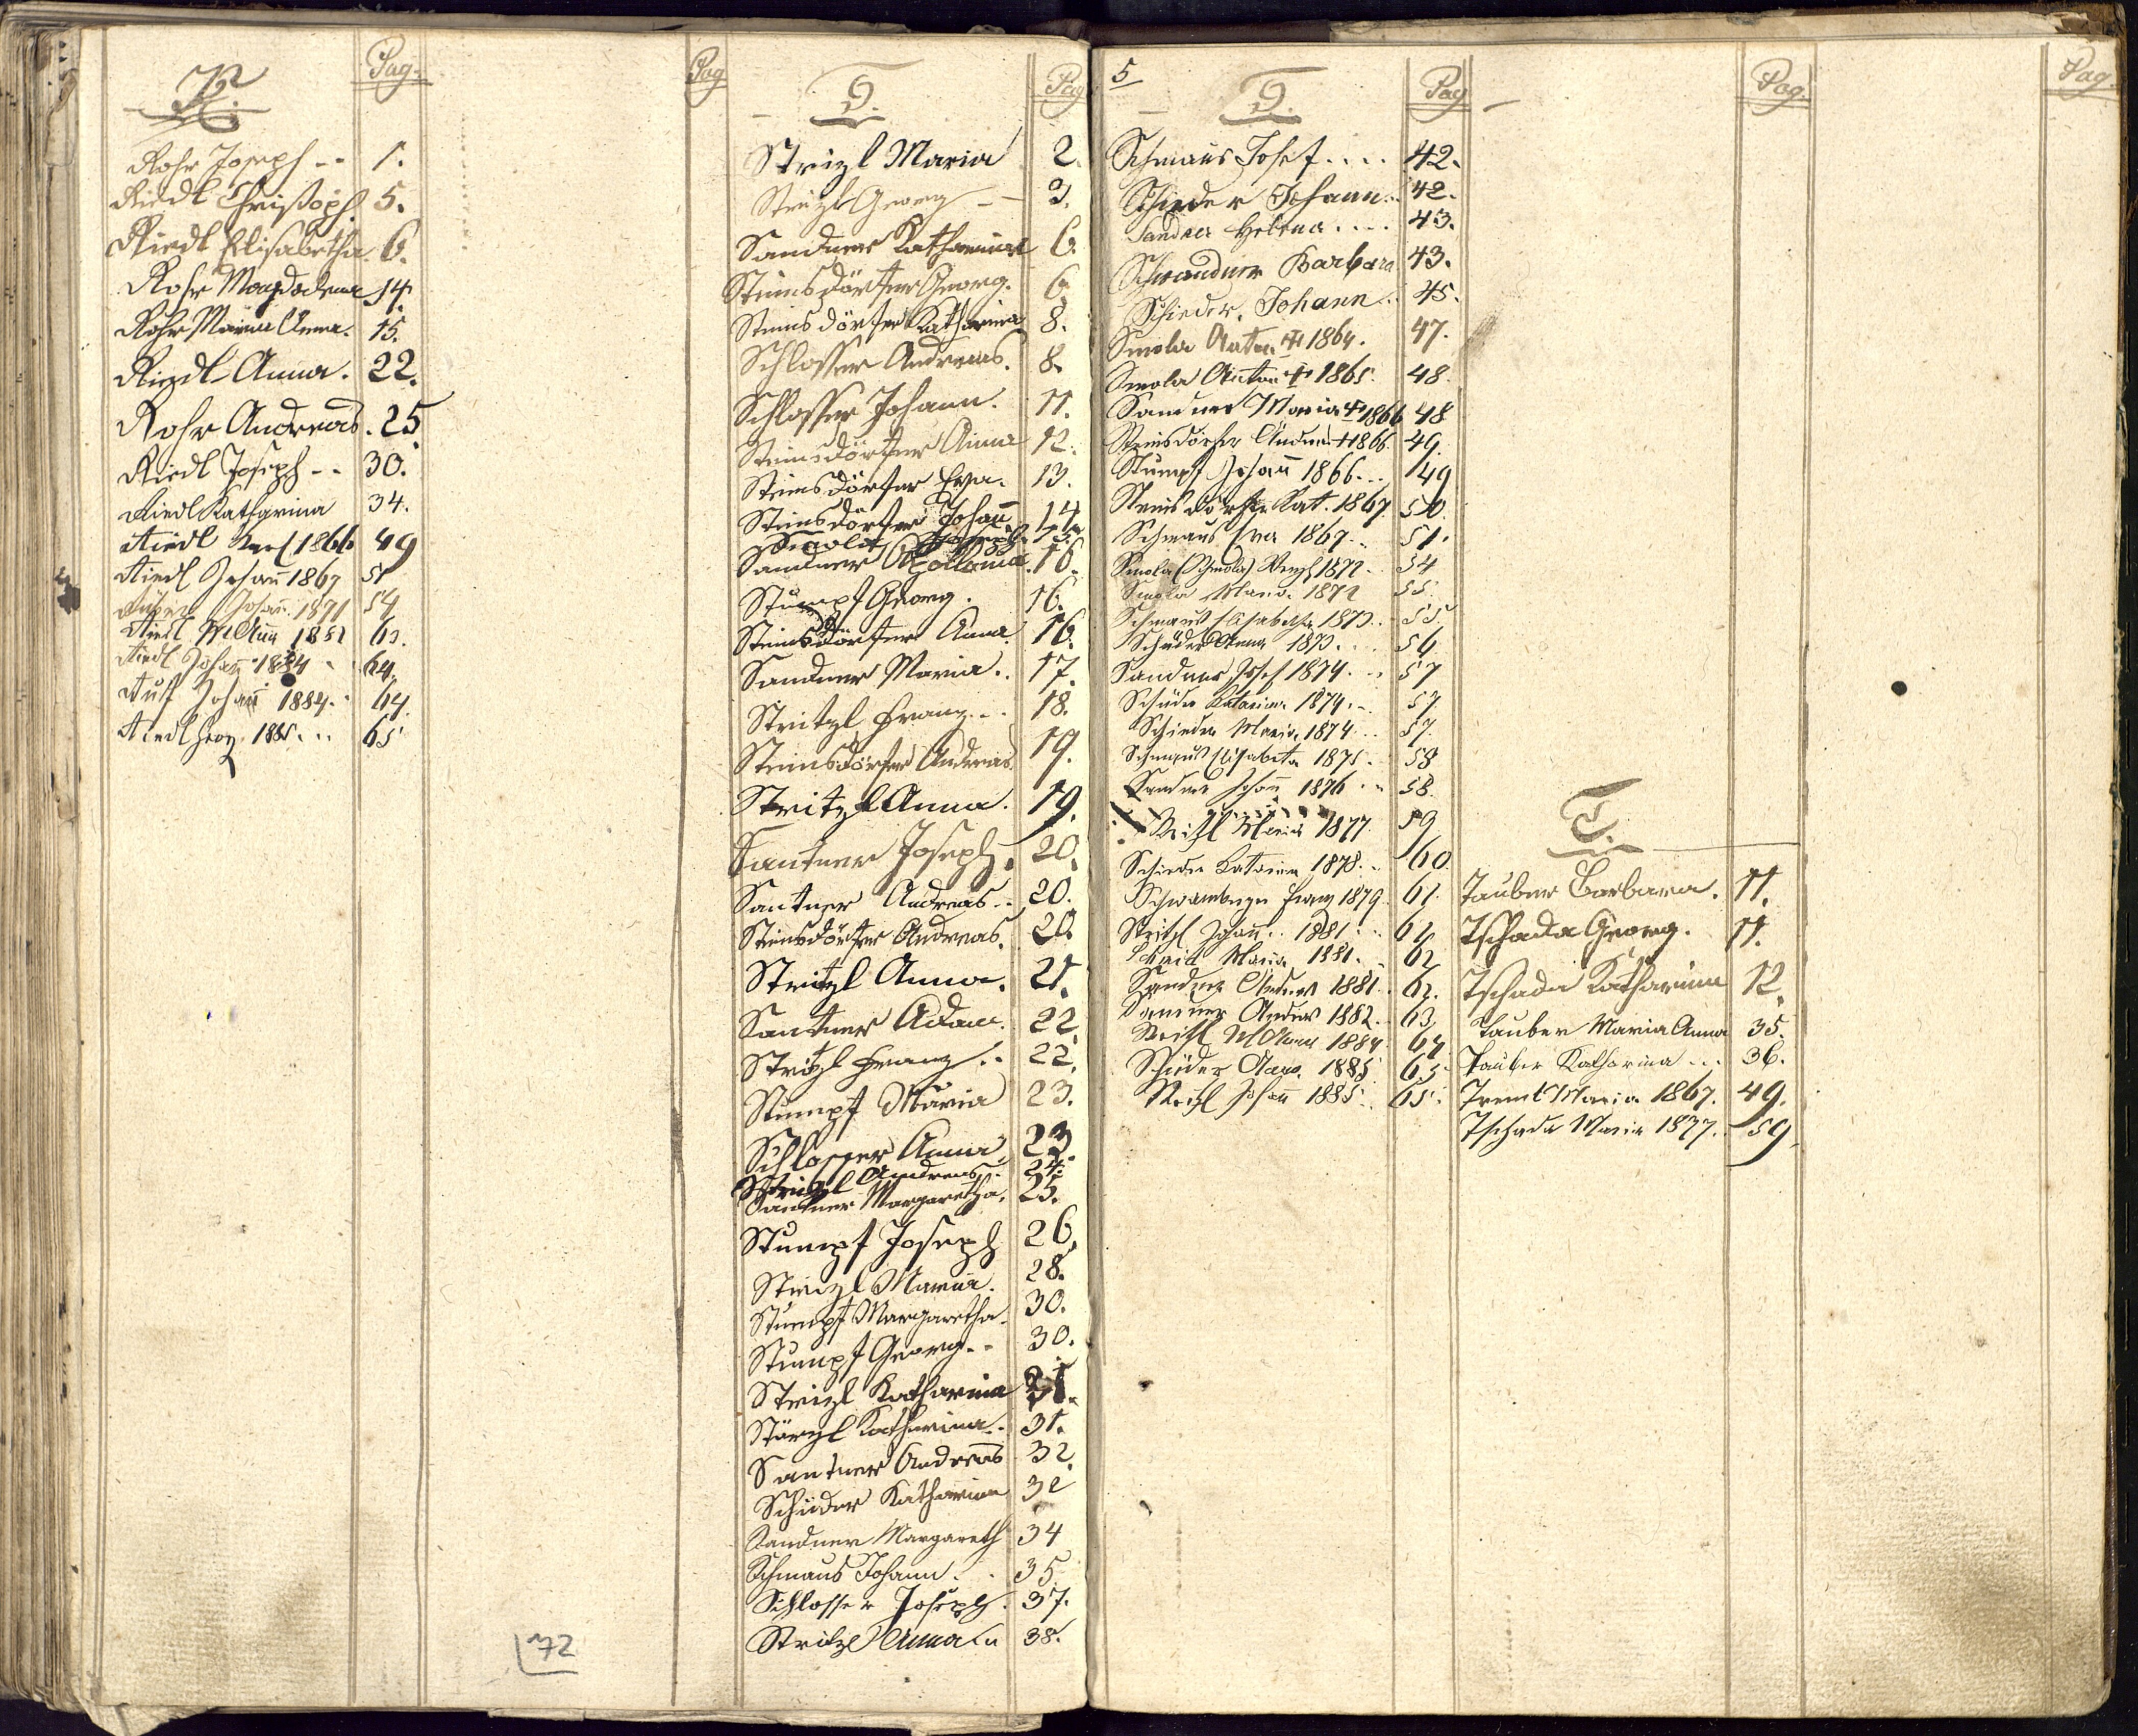 R. Pag.
Rohr Joseph -- 1.
Riedl Christoph 5.
Riedl Elisabetha 6.
Rohr Magdalena 14.
Rohr Maria Anna. 15.
Riedl Anna. 22.
Rohr Andreas. 25
Riedl Joseph -- 30.
Riedl Katharina 34.
Riedl Karl 1866 49
Riedl Johann 1867 51
Johann 1871 54
Riedl M Anna 1882 63.
Riedl Johann 1884 64.
Johann 1884. 64.
Riedl Georg 1885... 65
72
Pag
S. Pag
Strizl Maria 2.
Strizl Georg -- 3.
Sandner Katharina 6.
Steinsdörfer Georg. 6.
Steinsdörfer Katharina 8.
Schlosser Andreas. 8.
Schlosser Johann. 11.
Steinsdörfer Anna 12.
Steinsdörfer Eva. 13.
Steinsdörfer Johann 14.
Smola Joseph 15.
Sandner Apollonia. 16.
Stumpf Georg. 16.
Steinsdörfer Anna 16.
Sandner Maria.. 17.
Stritzl Franz... 18.
Steinsdörfer Andreas 19.
Stritzl Anna. 19.
Santner Joseph. 20.
Santner Andreas.. 20.
Steinsdörfer Andreas. 20.
Stritzl Anna. 21.
Santner Adam. 22.
Stritzl Franz.. 22.
Stumpf Maria 23.
Schlosser Anna 23.
Stritzl Andreas. 24.
Santner Margaretha. 25.
Stumpf Joseph 26.
Strizl Maria. 28.
Stumpf Margaretha. 30.
Stumpf Georg.. 30.
Strizl Katharina 31.
Störzl Katharina. 31.
Santner Andreas 32.
Schieder Katharina 32
Sandner Margareth 34
Schmaus Johann.. 35
Schlosser Joseph. 37.
Stritzl Anna 38.
5
S. Pag
Schmaus Josef.... 42.
Schieder Johann.. 42.
Sandner Helena.... 43.
Schwandner Barbara 43.
Schieder, Johann.. 45.
Smola Anton + 1864. 47.
Smola Anton + 1865. 48.
Sandner Maria + 1866 48
Steinsdörfer Andreas + 1866. 49.
Stumpf Johann 1866... 49
Steinsdörfer Kat. 1867 50.
Schmaus Eva 1867.. 51.
Smola (Schmola) 1872.. 54
Smola Maria 1872 55.
Schmaus Elisabetha 1873.. 55.
Schieder Anna 1873... 56
Sandner Josef 1874... 57
Schieder Katarina 1874.. 57
Schieder Maria 1874... 57.
Schmaus Elisabeta 1875. 58
Sandner Johann 1876.. 58.
Stritzl Maria 1877. 59
Schieder Katarina 1878.. 60
Schwamberger Franz 1879. 61.
Stritzl Johann.. 1881... 62.
Maria 1881.. 62
Sandner Andreas 1881.. 62.
Sandner Andreas 1882.. 63.
Stritzl M Anna 1884 64
Schieder Anna. 1885 65.
Stritzl Johann 1885.. 65.
Pag.
T.
Tauber Barbara. 11.
Tschada Georg. 11.
Tschada Katharina 12.
Tauber Maria Anna 35.
Tauber Katharina... 36.
Treml Maria 1867. 49.
Tschada Maria 1877.. 59.
Pag.